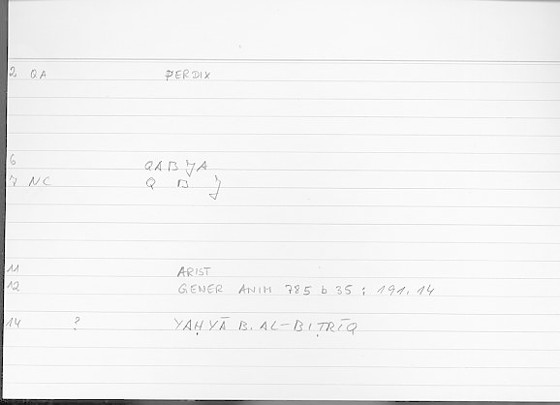 2 QA PERDIX
6 QABJA
7 NC Q B J
11 ARIST
12 GENER ANIM 785 b 35 ; 191, 14
14 ? YAḤYĀ B. AL-BIṬRĪQ